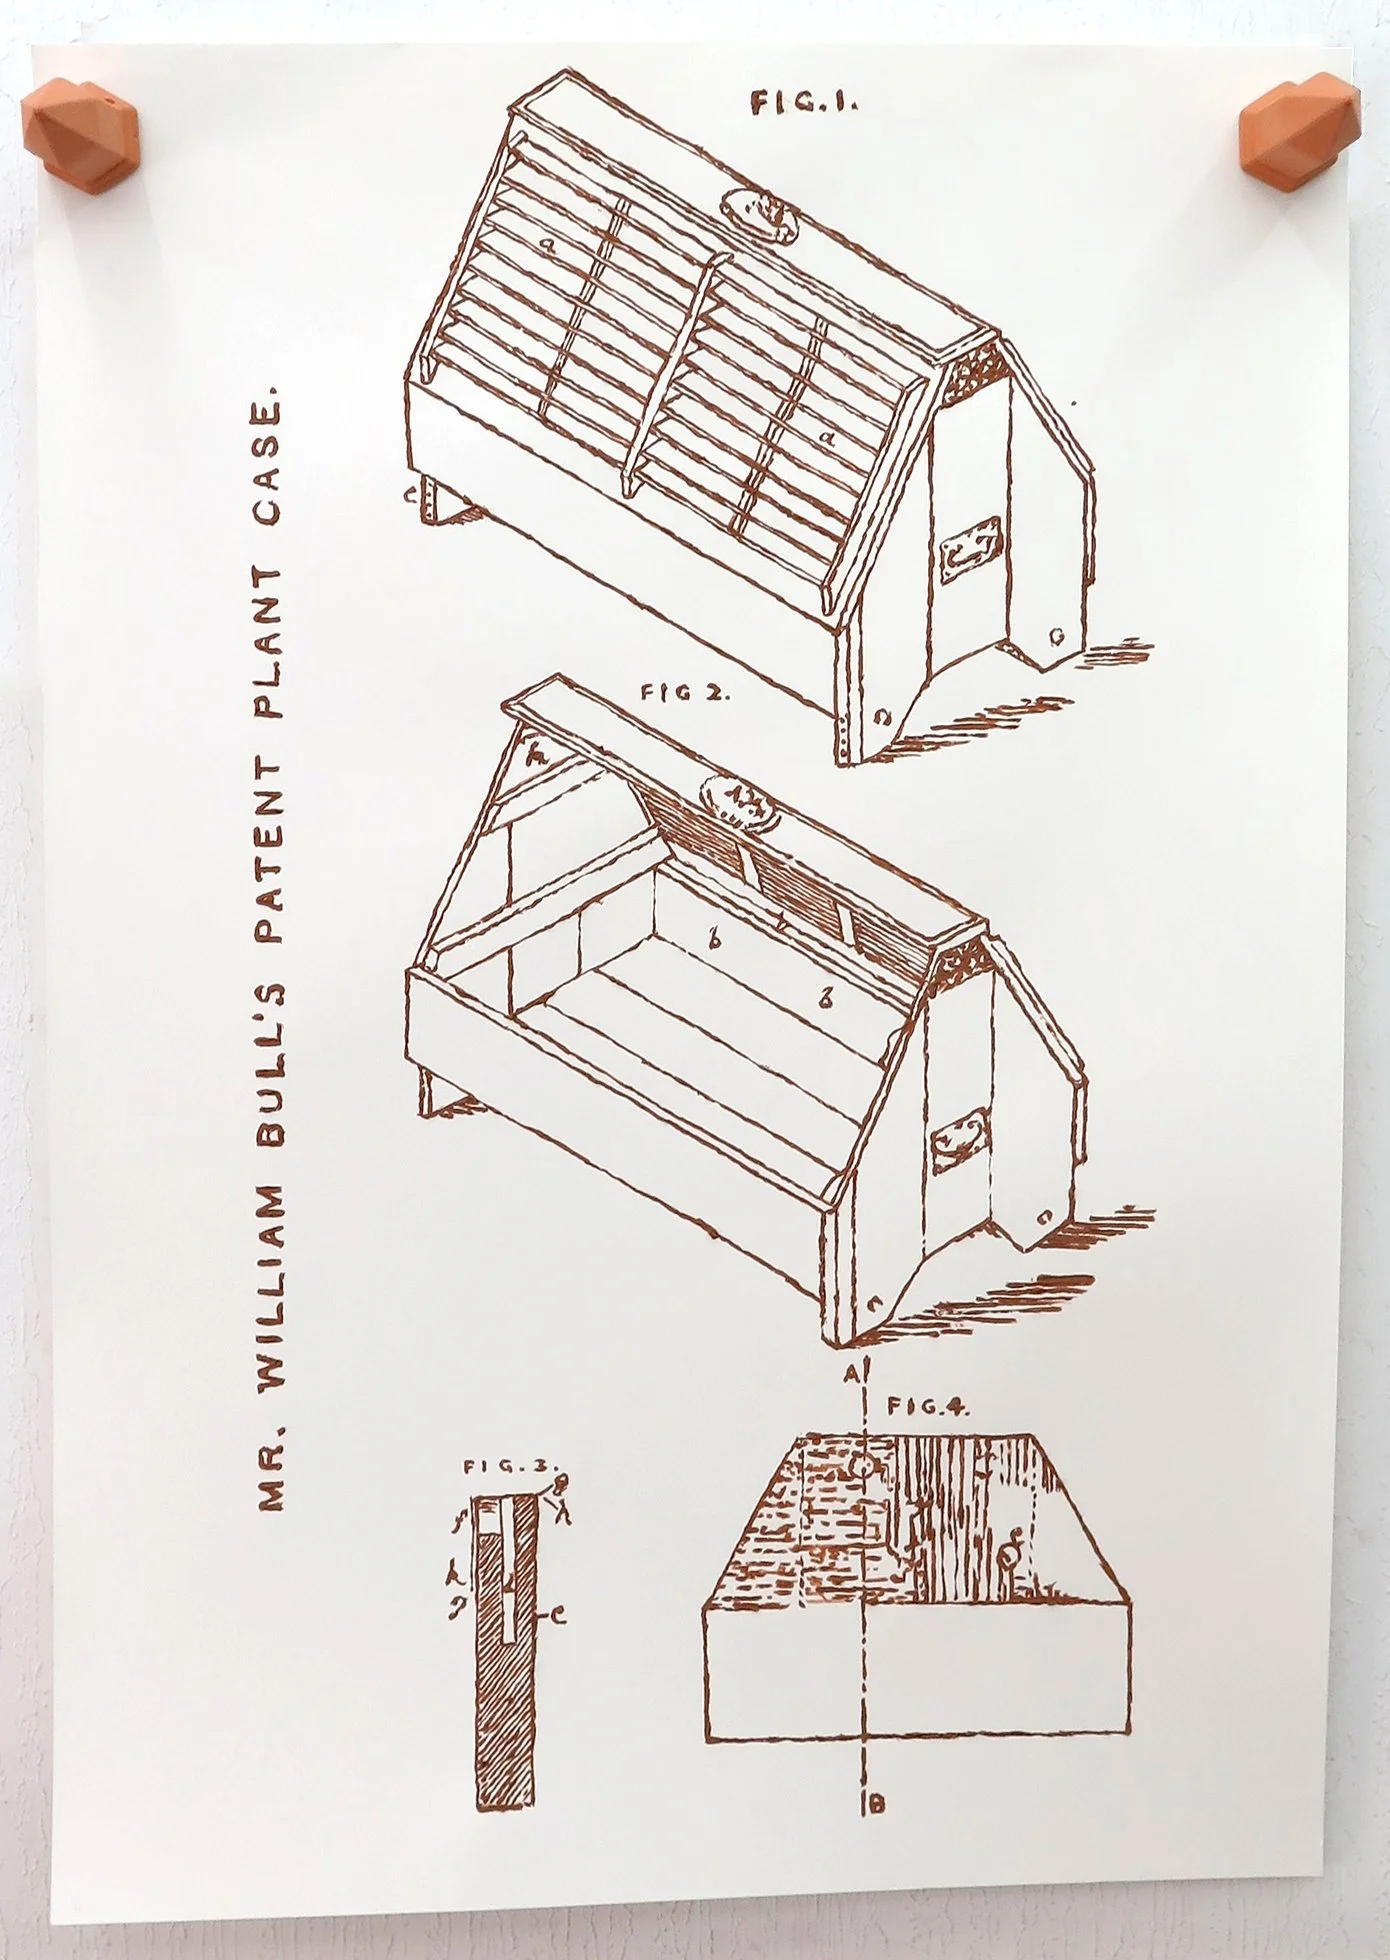 FIG.1.
a
a
c
MR. WILLIAM BULL'S PATENT PLANT CASE.
FIG 2.
b
b
A
FIG.4.
FIG.3.
g
f
h
h
e
B